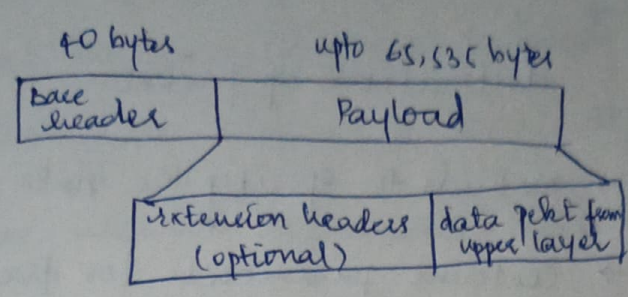 40 bytes upto 65,535 bytes
Base
header
Payload
Extension headers
(optional)
data pckt from
upper layer